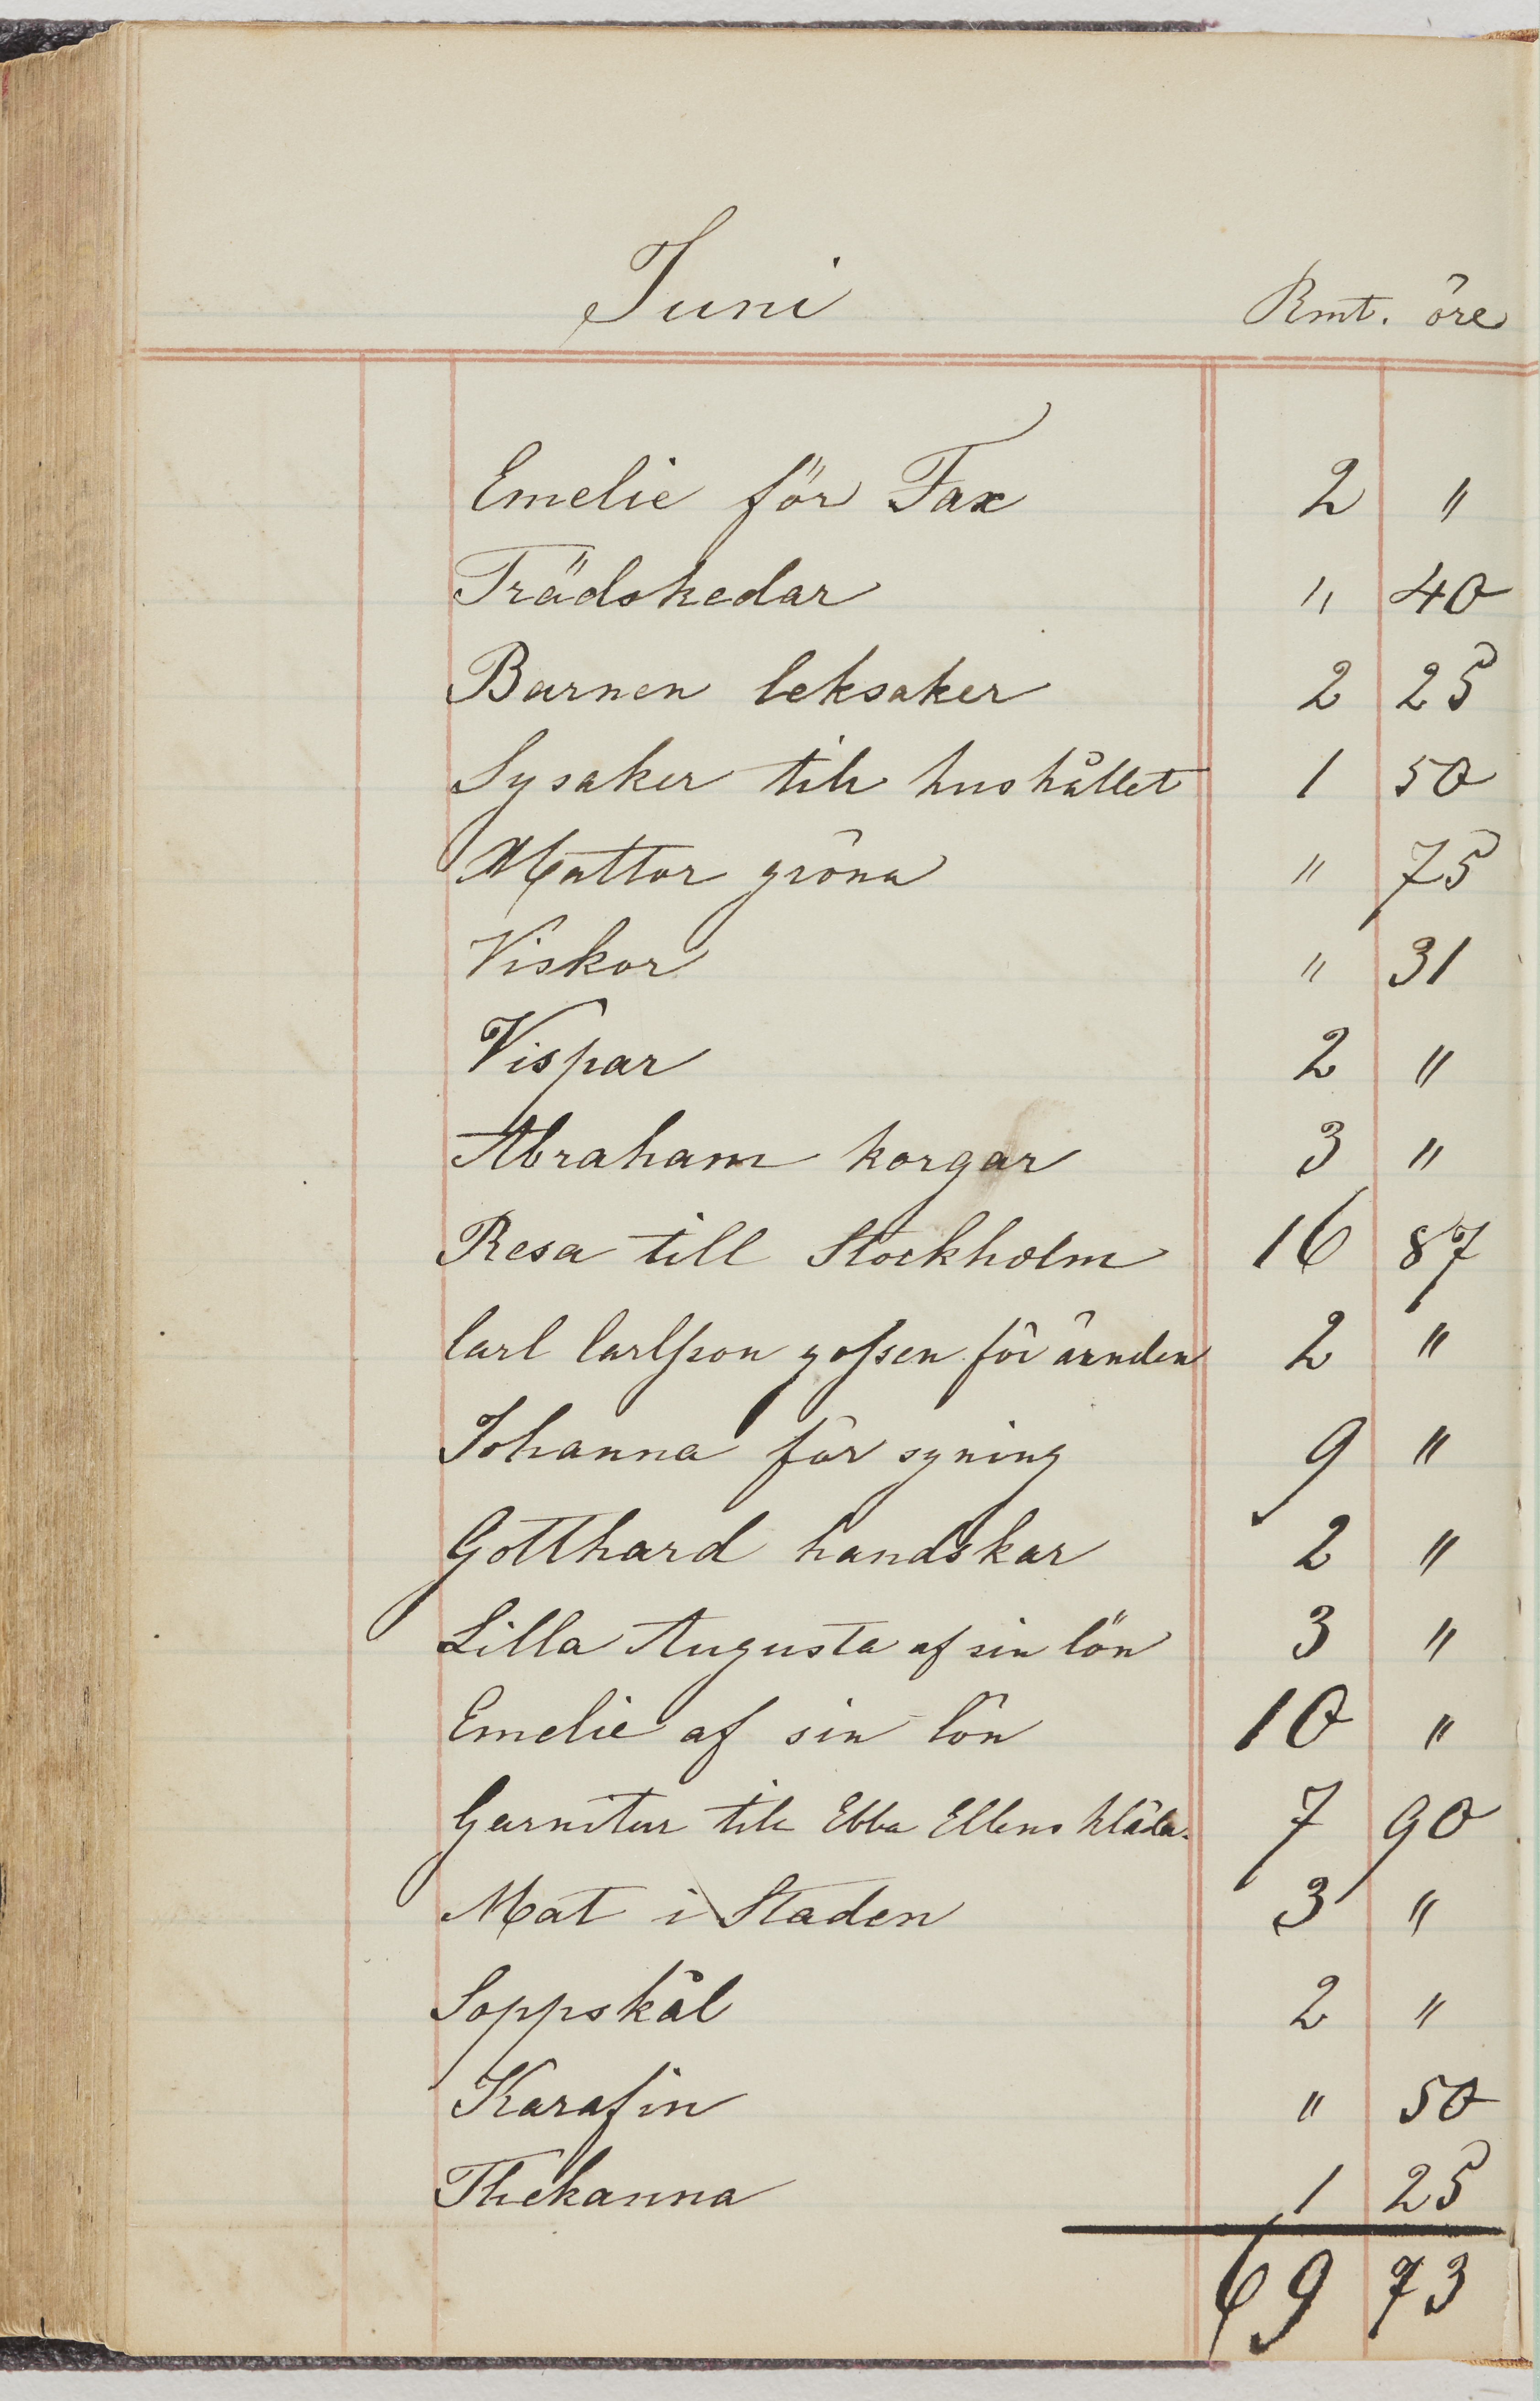 Juni Rmt. öre
Emelie för Fax 2 "
Trädskedar " 40
Barnen leksaker 2 25
Sysaker till hushållet 1 50
Mattor gröna " 75
Viskor " 31
Vispar 2 "
Abraham korgar 3 "
Resa till Stockholm 16 87
Carl Carlsson gossen för ärnden 2 "
Johanna för syning 9 "
Gotthard handskar 2 "
Lilla Augusta af sin lön 3 "
Emelie af sin lön 10 "
Garnitur till Ebba Ellens kläder 7 90
Mat i Staden 3 "
Soppskål 2 "
Karafin " 50
Thekanna 1 25
69 73